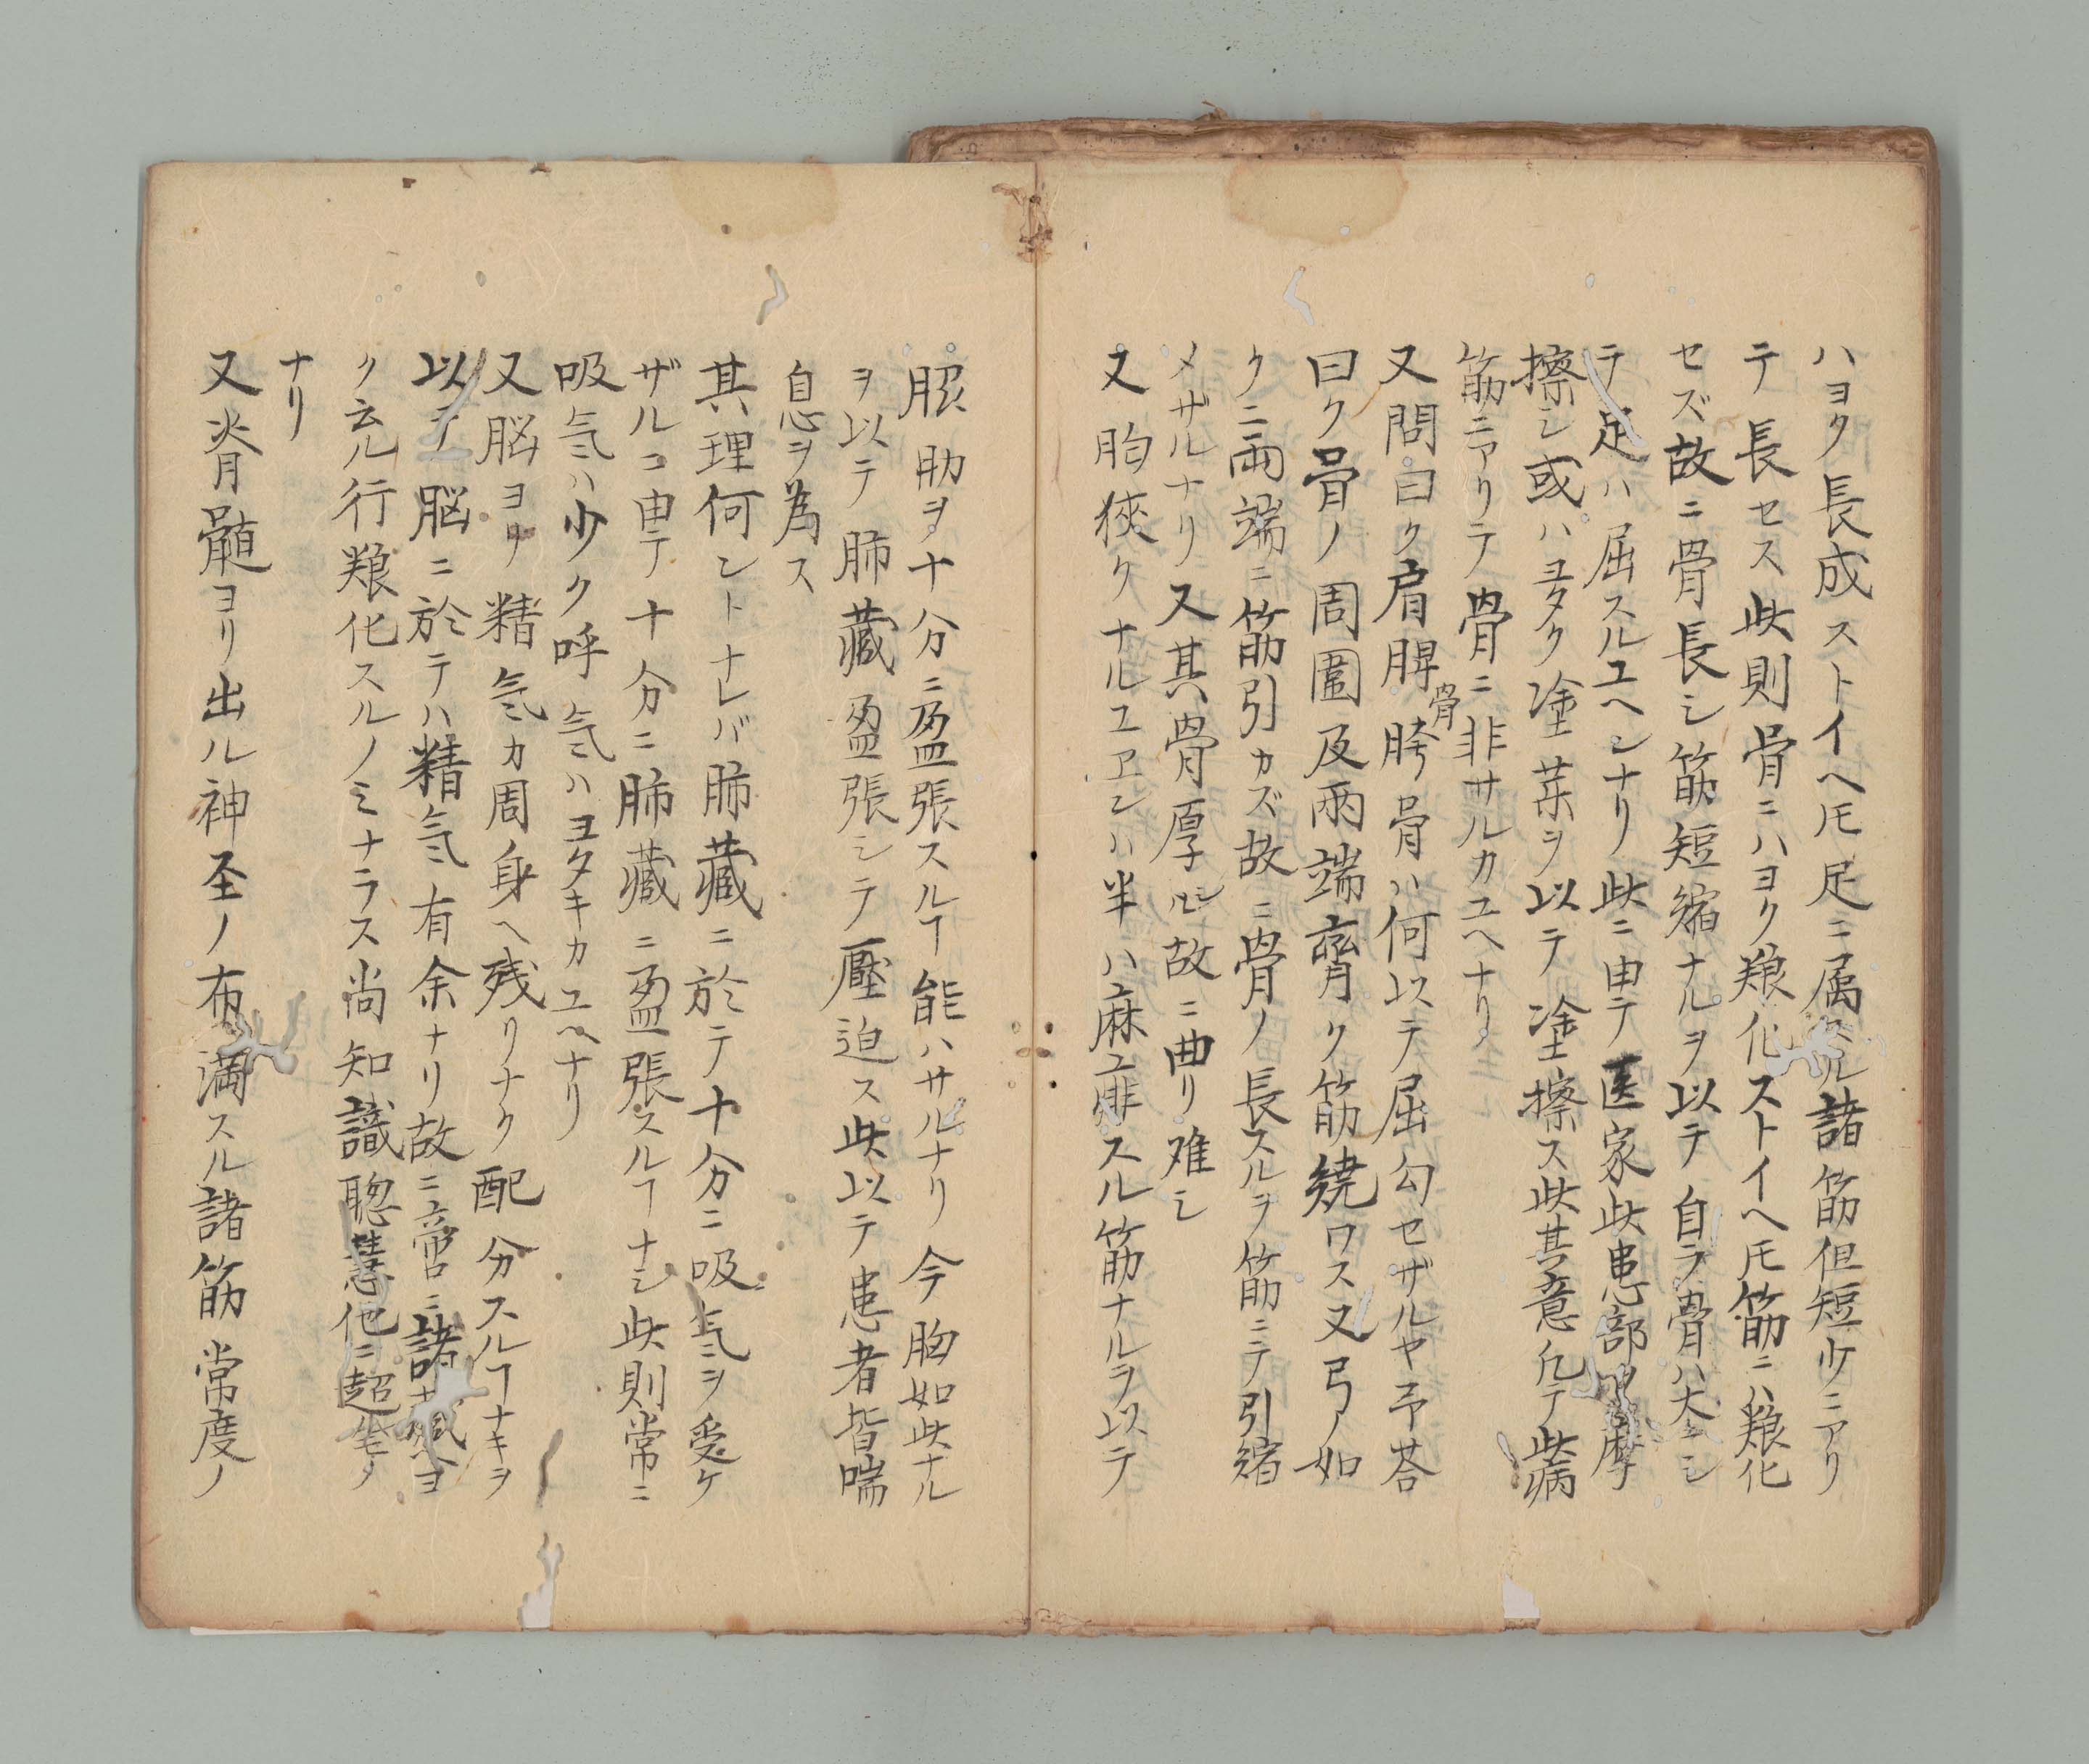 ハヨク長成ストイヘ𪜈足ニ属スル諸筋但短少ニアリ
テ長セス此則骨ニハヨク粮化ストイヘ𪜈筋ニハ粮化
セズ故ニ骨長シ筋短縮ナルヲ以テ自ラ骨ハ大ニシ
テ足ハ屈スルユヘンナリ此ニ由テ医家此患部ヲ摩
擦シ或ハヨタク塗薬ヲ以テ塗擦ス此其意凡テ此病
筋ニアリテ骨ニ非サルカユヘナリ
又問曰ク肩胛骨胯骨ハ何以テ屈勾セザルヤ予荅
曰ク骨ノ周圍及両端齊ク筋繞ワス又弓ノ如
クニ両端ニ筋引カズ故ニ骨ノ長スルヲ筋ニテ引縮
メザルナリ又其骨厚シ故ニ曲リ难シ
又胷狹クナルユヱンハ半ハ麻痱スル筋ナルヲ以テ
胘肋ヲ十分ニ盈張スルヿ能ハサルナリ今胸如此ナル
ヲ以テ肺藏盈張シテ壓迫ス此以テ患者皆喘
息ヲ為ス
其理何ントナレバ肺藏ニ於テ十分ニ吸気ヲ受ケ
ザルコ由テ十分ニ肺藏ニ盈張スルヿナシ此則常ニ
吸気ハ少ク呼気ハヨタキカユヘナリ
又脳ヨリ精気カ周身ヘ残リナク配分スルヿナキヲ
以テ脳ニ於テハ精気有余ナリ故ニ啻ニ諸藏ヨ
ク充ル行粮化スルノミナラス尚知識聡慧他ニ超ルモノ
ナリ
又脊髄ヨリ出ル神圣ノ布満スル諸筋常度ノ